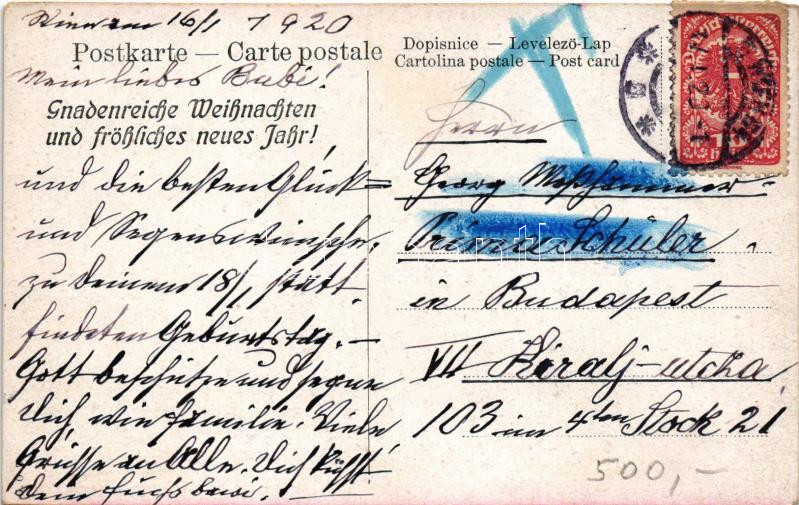 Wien am 16/1 1920
Postkarte — Carte postale
Dopisnice — Levelező-Lap
Cartolina postale — Post card
Mein liebes Bubi!
Gnadenreiche Weihnachten
und fröhliches neues Jahr!
und die besten Glück=
und Segenswünsche,
zu deinem 18/1 statt
findeten Geburtstag. —
Gott beschütze und segne
Dich, wie Familie. Viele
Grüsse an Alle. Dich küsst!
Dein
Herrn
Georg
Prima Schüler.
in Budapest
VII Kiralj-utcha
103 im 4ten Stock 21
500,-